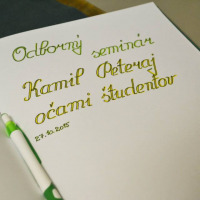 Odborný seminár
Kamil Peteraj
očami študentov
27.10.2015